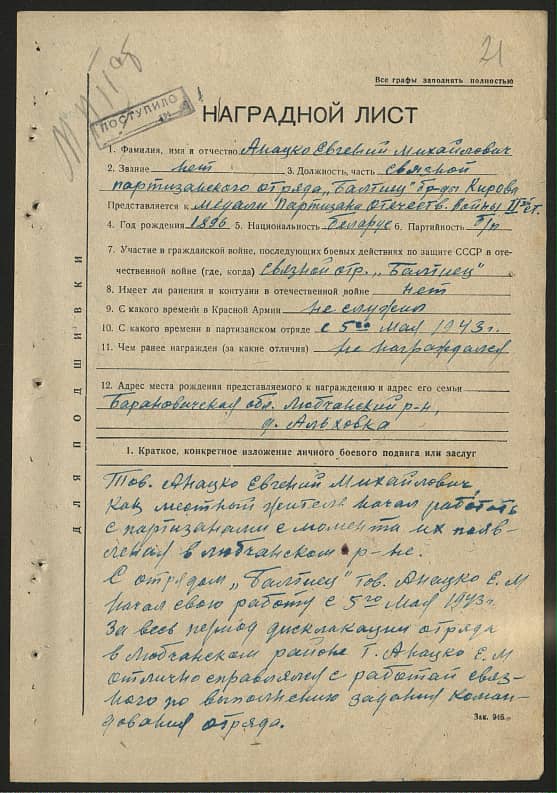 21
Все графы заполнять полностью
ПОСТУПИЛО
НАГРАДНОЙ ЛИСТ
1. Фамилия, имя и отчество Анацко Евгений Михайлович
2. Звание нет 3. Должность, часть связной
партизанского отряда „Балтиец" бр-ды Кирова
Представляется к медали Партизана Отечеств. войны II ст.
4. Год рождения 1896 5. Национальность Беларус 6. Партийность б/п
7. Участие в гражданской войне, последующих боевых действиях по защите СССР и оте-
чественной войне (где, когда) связной отр. „Балтиец"
8. Имеет ли ранения и контузии в отечественной войне нет
9. С какого времени в Красной Армии не служил
10. С какого времени в партизанском отряде с 5го Мая 1943г.
11. Чем ранее награжден (за какие отличия) не награждался
12. Адрес места рождения представляемого к награждению и адрес его семьи
Барановичская обл. Любчанский р-н,
д. Альховка
1. Краткое, конкретное изложение личного боевого подвига или заслуг
Тов. Анацко Евгений Михайлович,
как местный житель начал работать
с партизанами с момента их появ-
ления в Любчанском р-не.
С отрядом „Балтиец" тов. Анацко Е. М
начал свою работу с 5го Мая 1943г.
За весь период дисклакации отряда
в Любчанском районе т. Анацко Е. М
отлично справлялся с работай связ-
ного по выполнению задания коман-
дования отряда.
Зак. 946
ДЛЯ ПОДШИВКИ